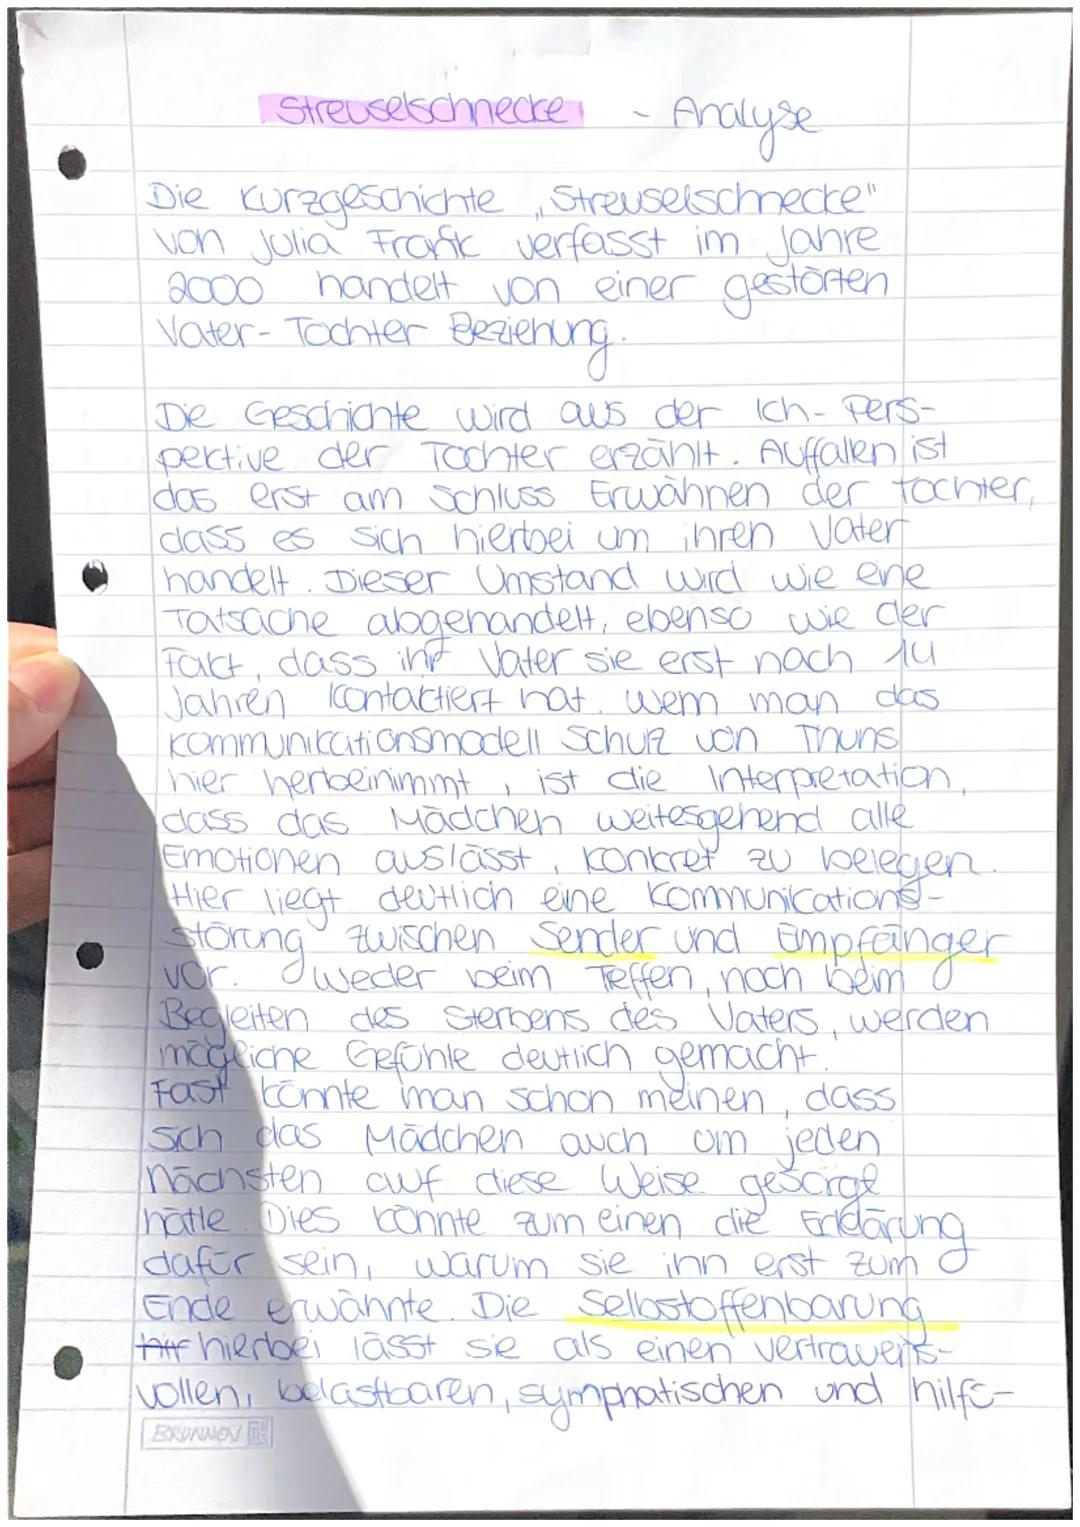 Streuselschnecke - Analyse
Die Kurzgeschichte „Streuselschnecke"
von Julia Frank verfasst im Jahre
2000 handelt von einer gestörten
Vater-Tochter Beziehung.
Die Geschichte wird aus der Ich-Pers-
pektive der Tochter erzählt. Auffallen ist
das erst am Schluss Erwähnen der Tochter,
dass es sich hierbei um ihren Vater
handelt. Dieser Umstand wird wie eine
Tatsache abgehandelt, ebenso wie der
Fakt, dass ihr Vater sie erst nach 14
Jahren kontaktiert hat. Wenn man das
Kommunikationsmodell Schulz von Thuns
hier herbeinimmt, ist die Interpretation,
dass das Mädchen weitesgehend alle
Emotionen auslässt, konkret zu belegen.
Hier liegt deutlich eine Kommunikations-
störung zwischen Sender und Empfänger
vor. Weder beim Teffen, noch beim
Begleiten des Sterbens des Vaters, werden
mögliche Gefühle deutlich gemacht.
Fast könnte man schon meinen, dass
sich das Mädchen auch um jeden
Nächsten auf diese Weise gesorgt
hätte. Dies könnte zum einen die Erklärung
dafür sein, warum sie ihn erst zum
Ende erwähnte. Die Selbstoffenbarung
hierbei lässt sie als einen vertrauens-
vollen, belastbaren, symphatischen und hilfs-
BRUNNEN